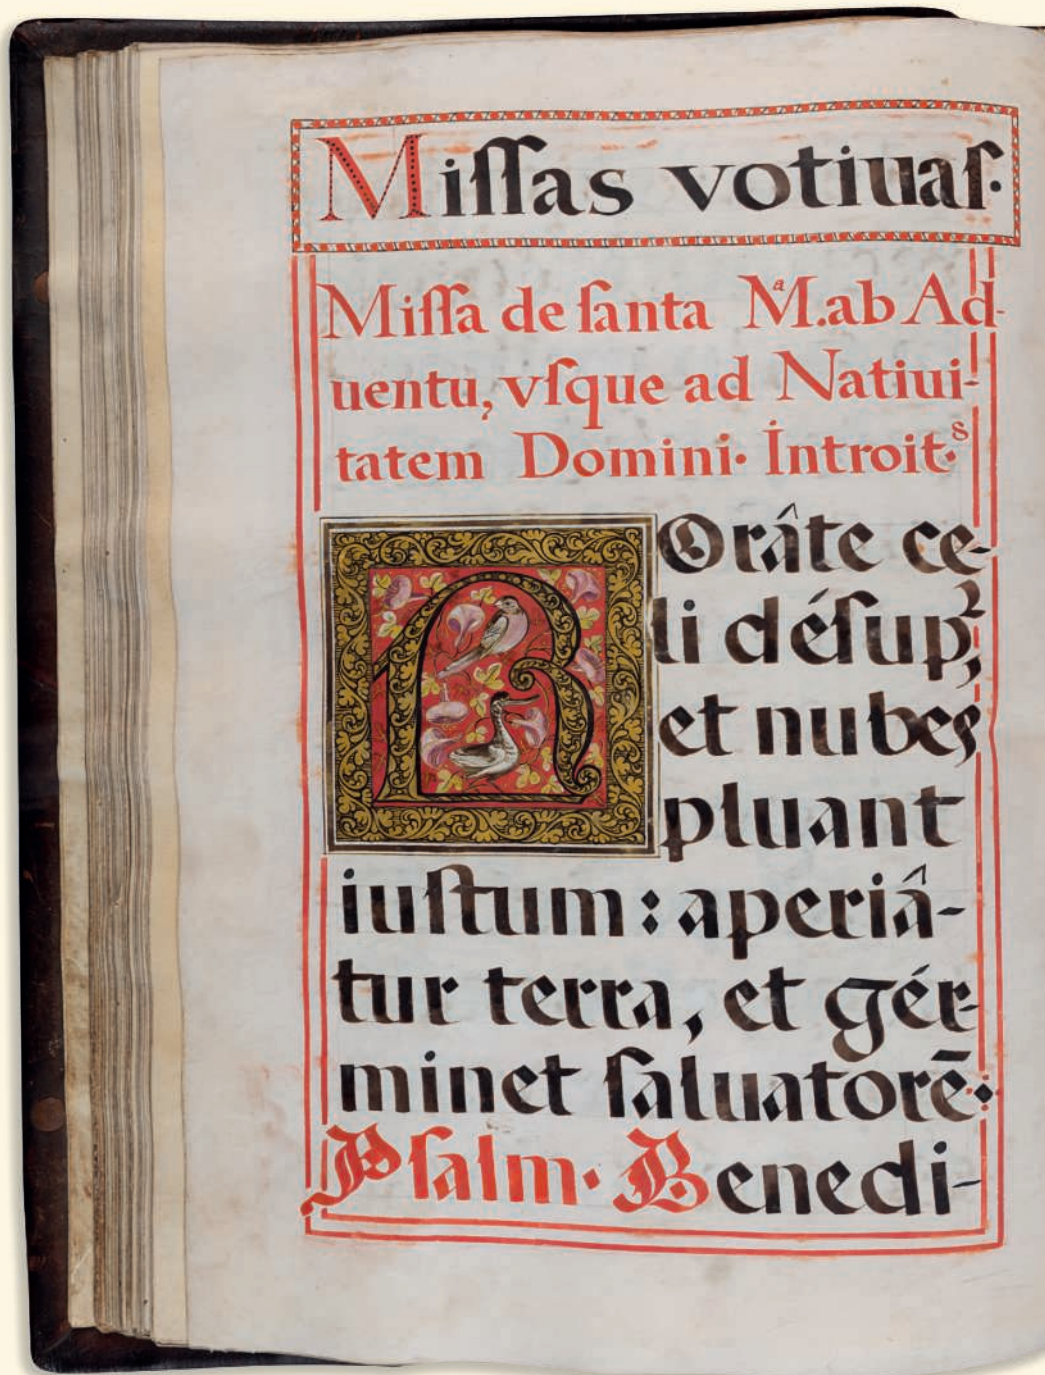 Miſſas votiuaſ.
Miſſa de ſanta Mᵃ. ab Ad-
uentu, vſque ad Natiui-
tatem Domini. İntroit.⁹
ROrâte ce-
li déſup̲ꝛ,
et nubes
pluant
iuſtum: aperiâ-
tur terra, et gér-
minet ſaluatorē:
Pſalm. Benedi-